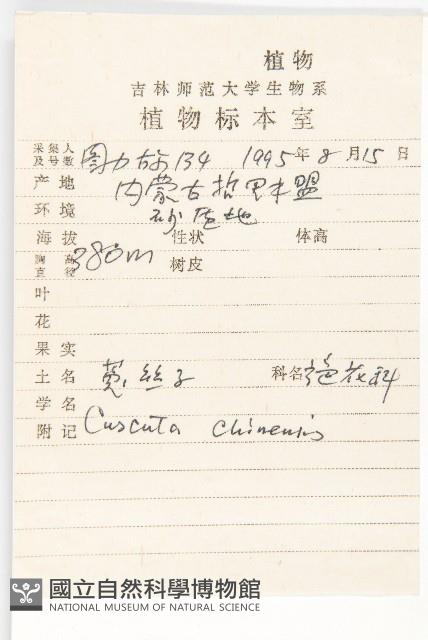 植物
吉林师范大学生物系
植物标本室
采集人及号数 图力古尔 134 1995年8月15日
产地 内蒙古哲里木盟
环境 砂质地
海拔 380m 性状 体高
胸高直径 树皮
叶
花
果实
土名 菟丝子 科名 旋花科
学名
附记 Cuscuta chinensis
國立自然科學博物館
NATIONAL MUSEUM OF NATURAL SCIENCE